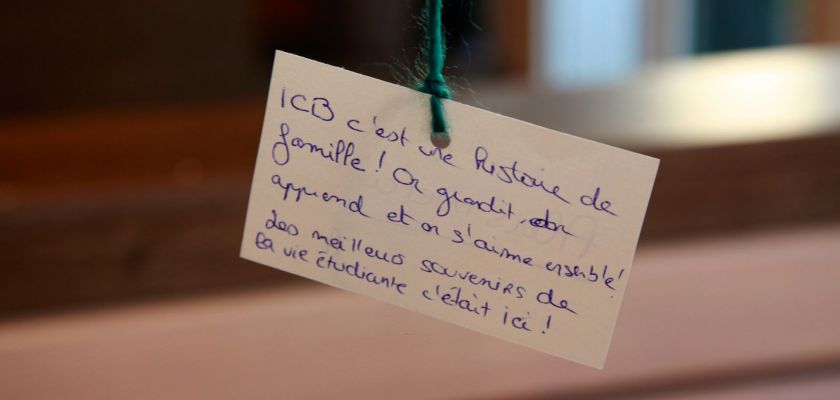 ICB c'est une histoire de
famille ! On grandit, on
apprend et on s'aime ensemble !
des meilleurs souvenirs de
la vie étudiante c'était ici !